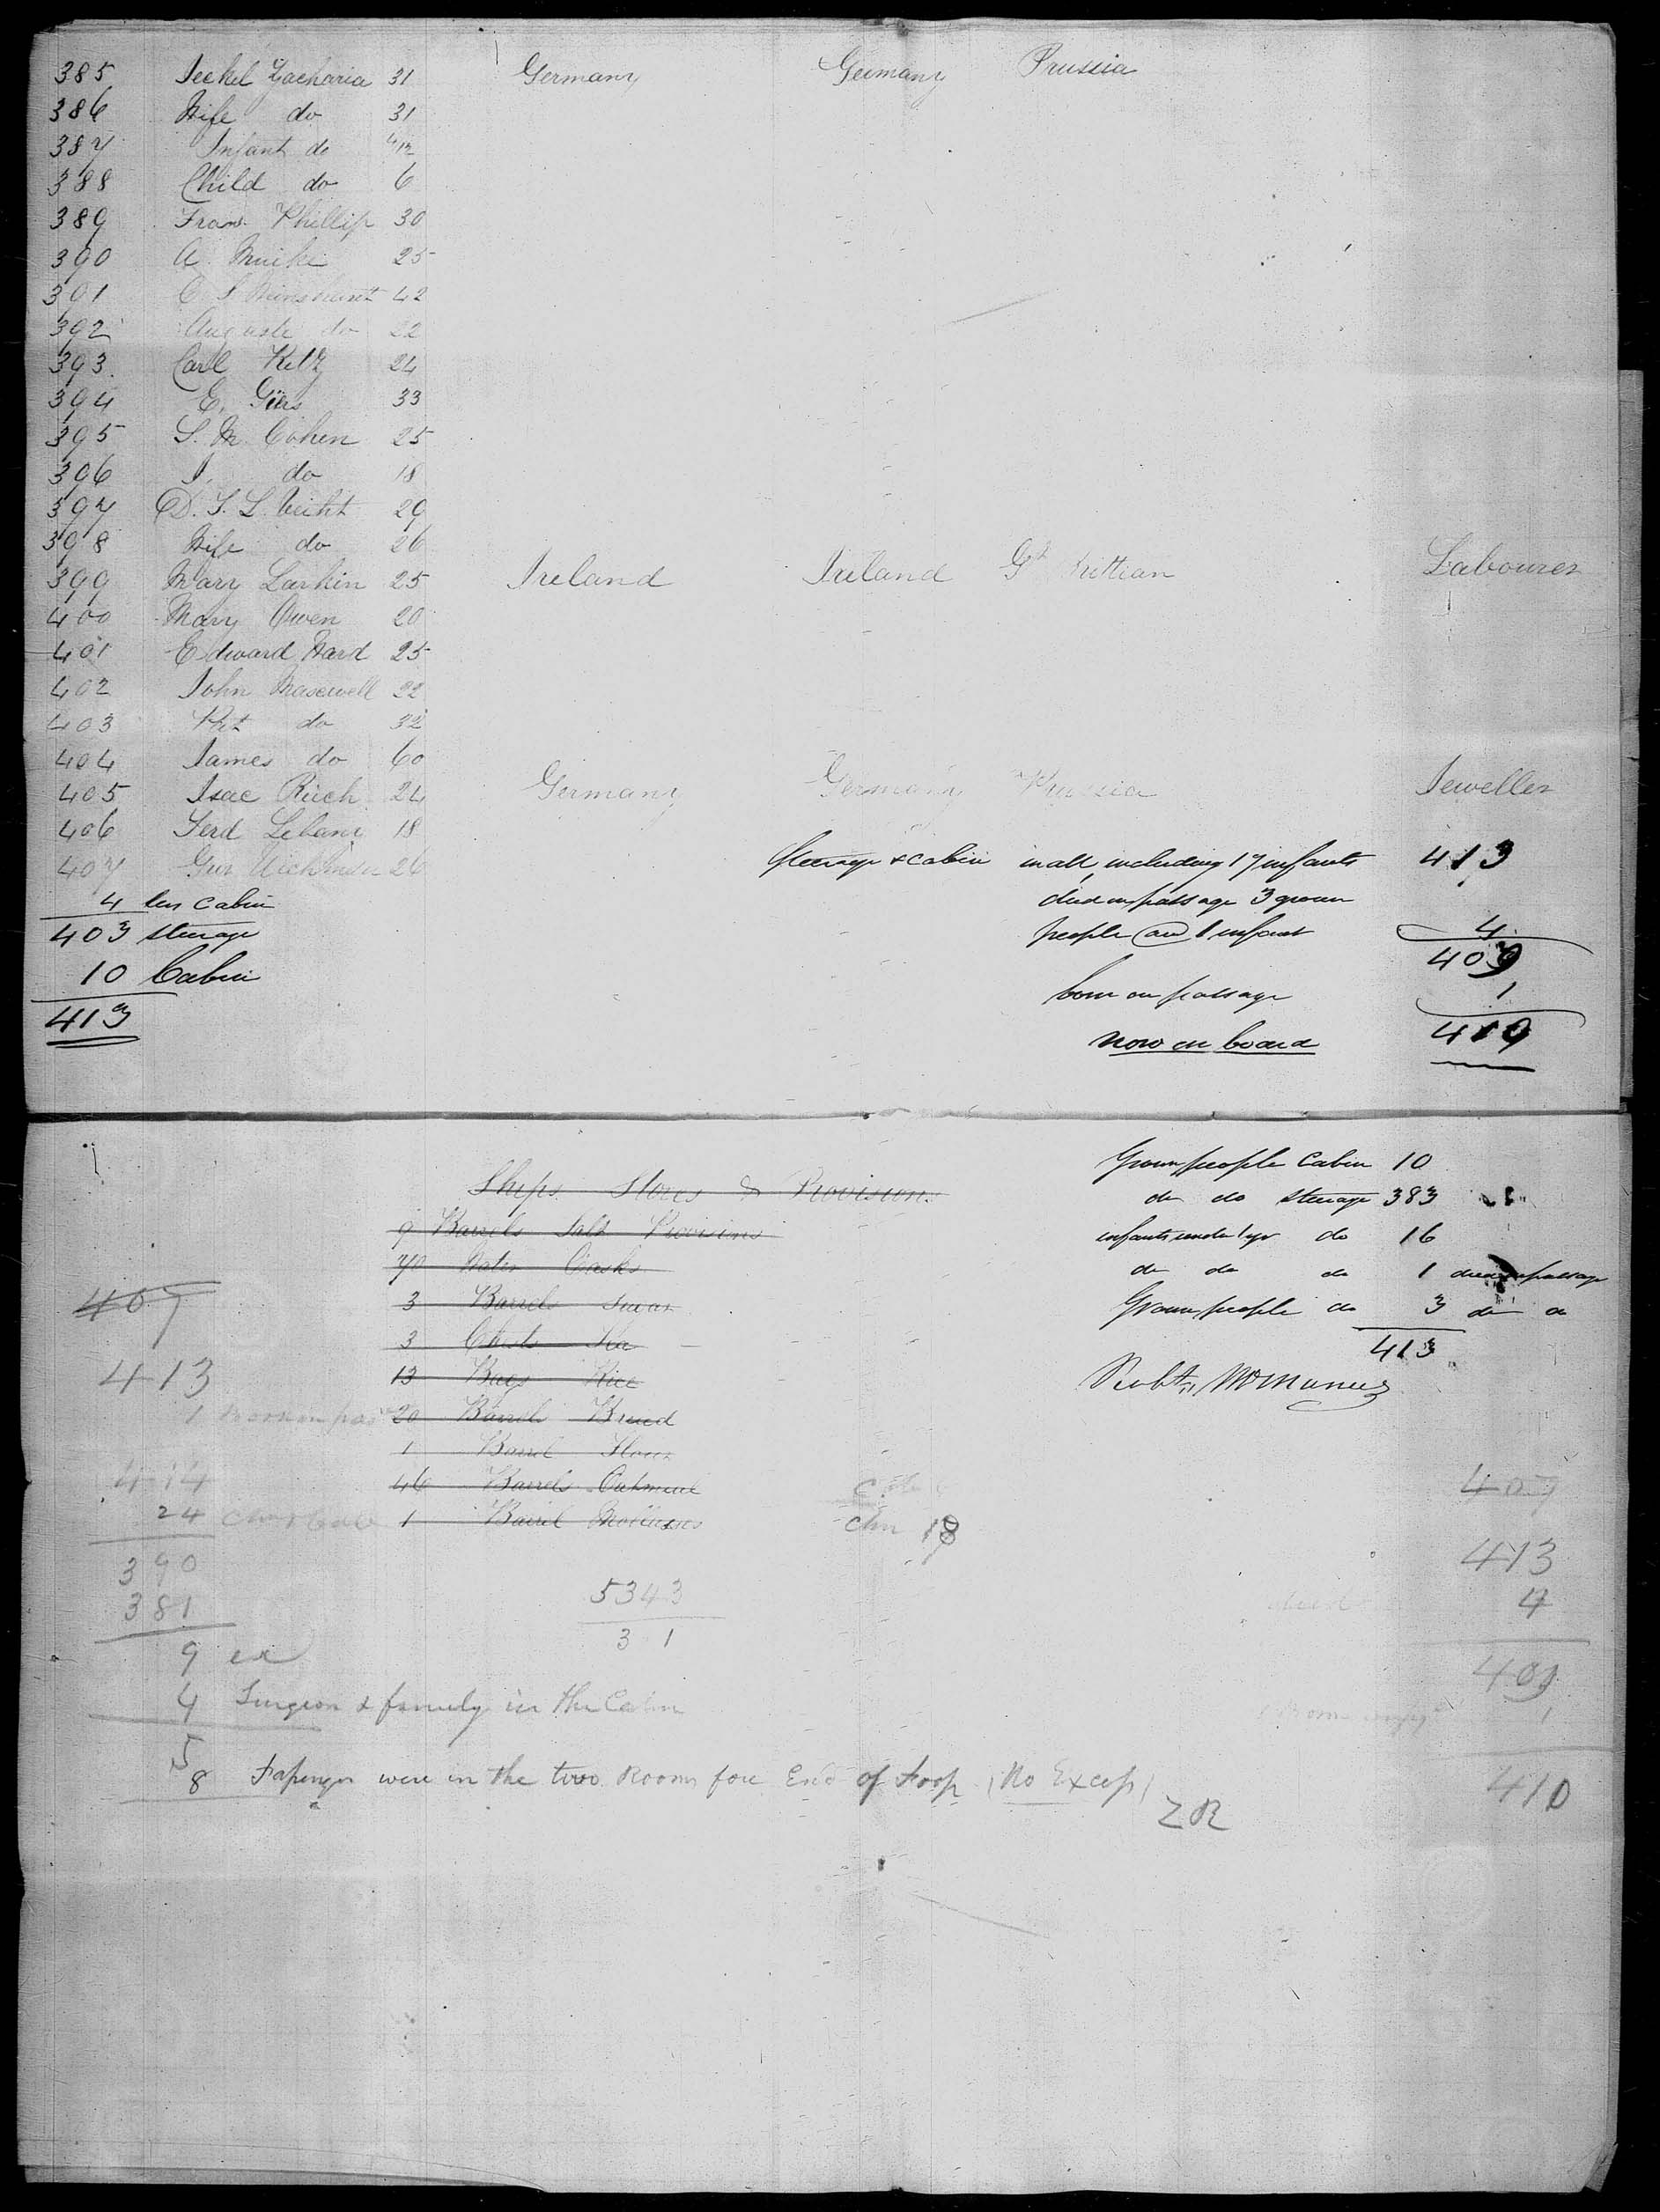 385 Jeckel Zacharia 31 Germany Germany Prussia
386 Wife do 31
387 Infant do
388 Child do 6
389 Frans Phillip 30
390 A. 25
391 C. S. 42
392 Auguste do 22
393. Carl Keltz 24
394 E. Giers 33
395 S. M. Cohen 25
396 J. do 18
397 D. S. L. Veicht 29
398 Wife do 26
399 Mary Larkin 25 Ireland Ireland Gt Brittian Labourer
400 Mary Owen 20
401 Edward Ward 25
402 John Maxewell 22
403 Pat do 32
404 James do 60
405 Isac Rüch 24 Germany Germany Prussia Jeweller
406 Ferd Lebany 18
407 26
Steerage & Cabin in all, including 17 infants 413
4 less Cabin
died on passage 3 grown
403 steerage
people and 1 infant 4
409
10 Cabin
born on passage 1
413
now on board 410
Grown people Cabin 10
Ships Stores & Provisions
do do steerage 383
9 Barrels Salt Provisions
infants under 1 yr do 16
70 Water Casks
do do do 1 died on passage
407
3 Barrels Sugar
Grown people do 3 do do
3 Chests Tea
413
413
13 Bags Rice
Robt. McManus
1 born on pas
20 Barrels Bread
1 Barrel Flour
414
46 Barrels Oatmeal
407
24
1 Barrel Mollasses
chn 18
390
413
381
5343
4
3 1
9 ex
409
4 Surgeon & family in the Cabin
1
5
8 Passengers were in the two Rooms fore End of Poop (No Excess)
410
ZR